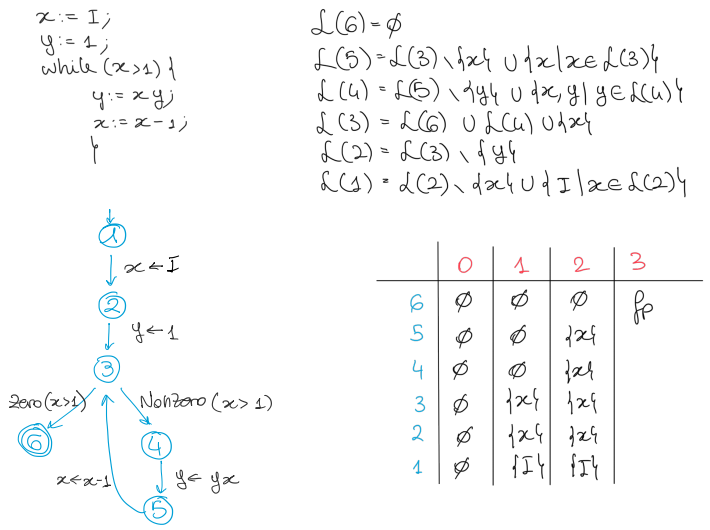 x := I;
y := 1;
while (x>1) {
y := xy;
x := x-1;
}
L(6) = ∅
L(5) = L(3) \ {x} ∪ {x | x ∈ L(3)}
L(4) = L(5) \ {y} ∪ {x, y | y ∈ L(4)}
L(3) = L(6) ∪ L(4) ∪ {x}
L(2) = L(3) \ {y}
L(1) = L(2) \ {x} ∪ {I | x ∈ L(2)}
1
x ← I
2
y ← 1
3
Zero(x>1) NonZero (x>1)
6 4
x ← x-1 y ← yx
5
0 1 2 3
6 ∅ ∅ ∅ fp
5 ∅ ∅ {x}
4 ∅ ∅ {x}
3 ∅ {x} {x}
2 ∅ {x} {x}
1 ∅ {I} {I}